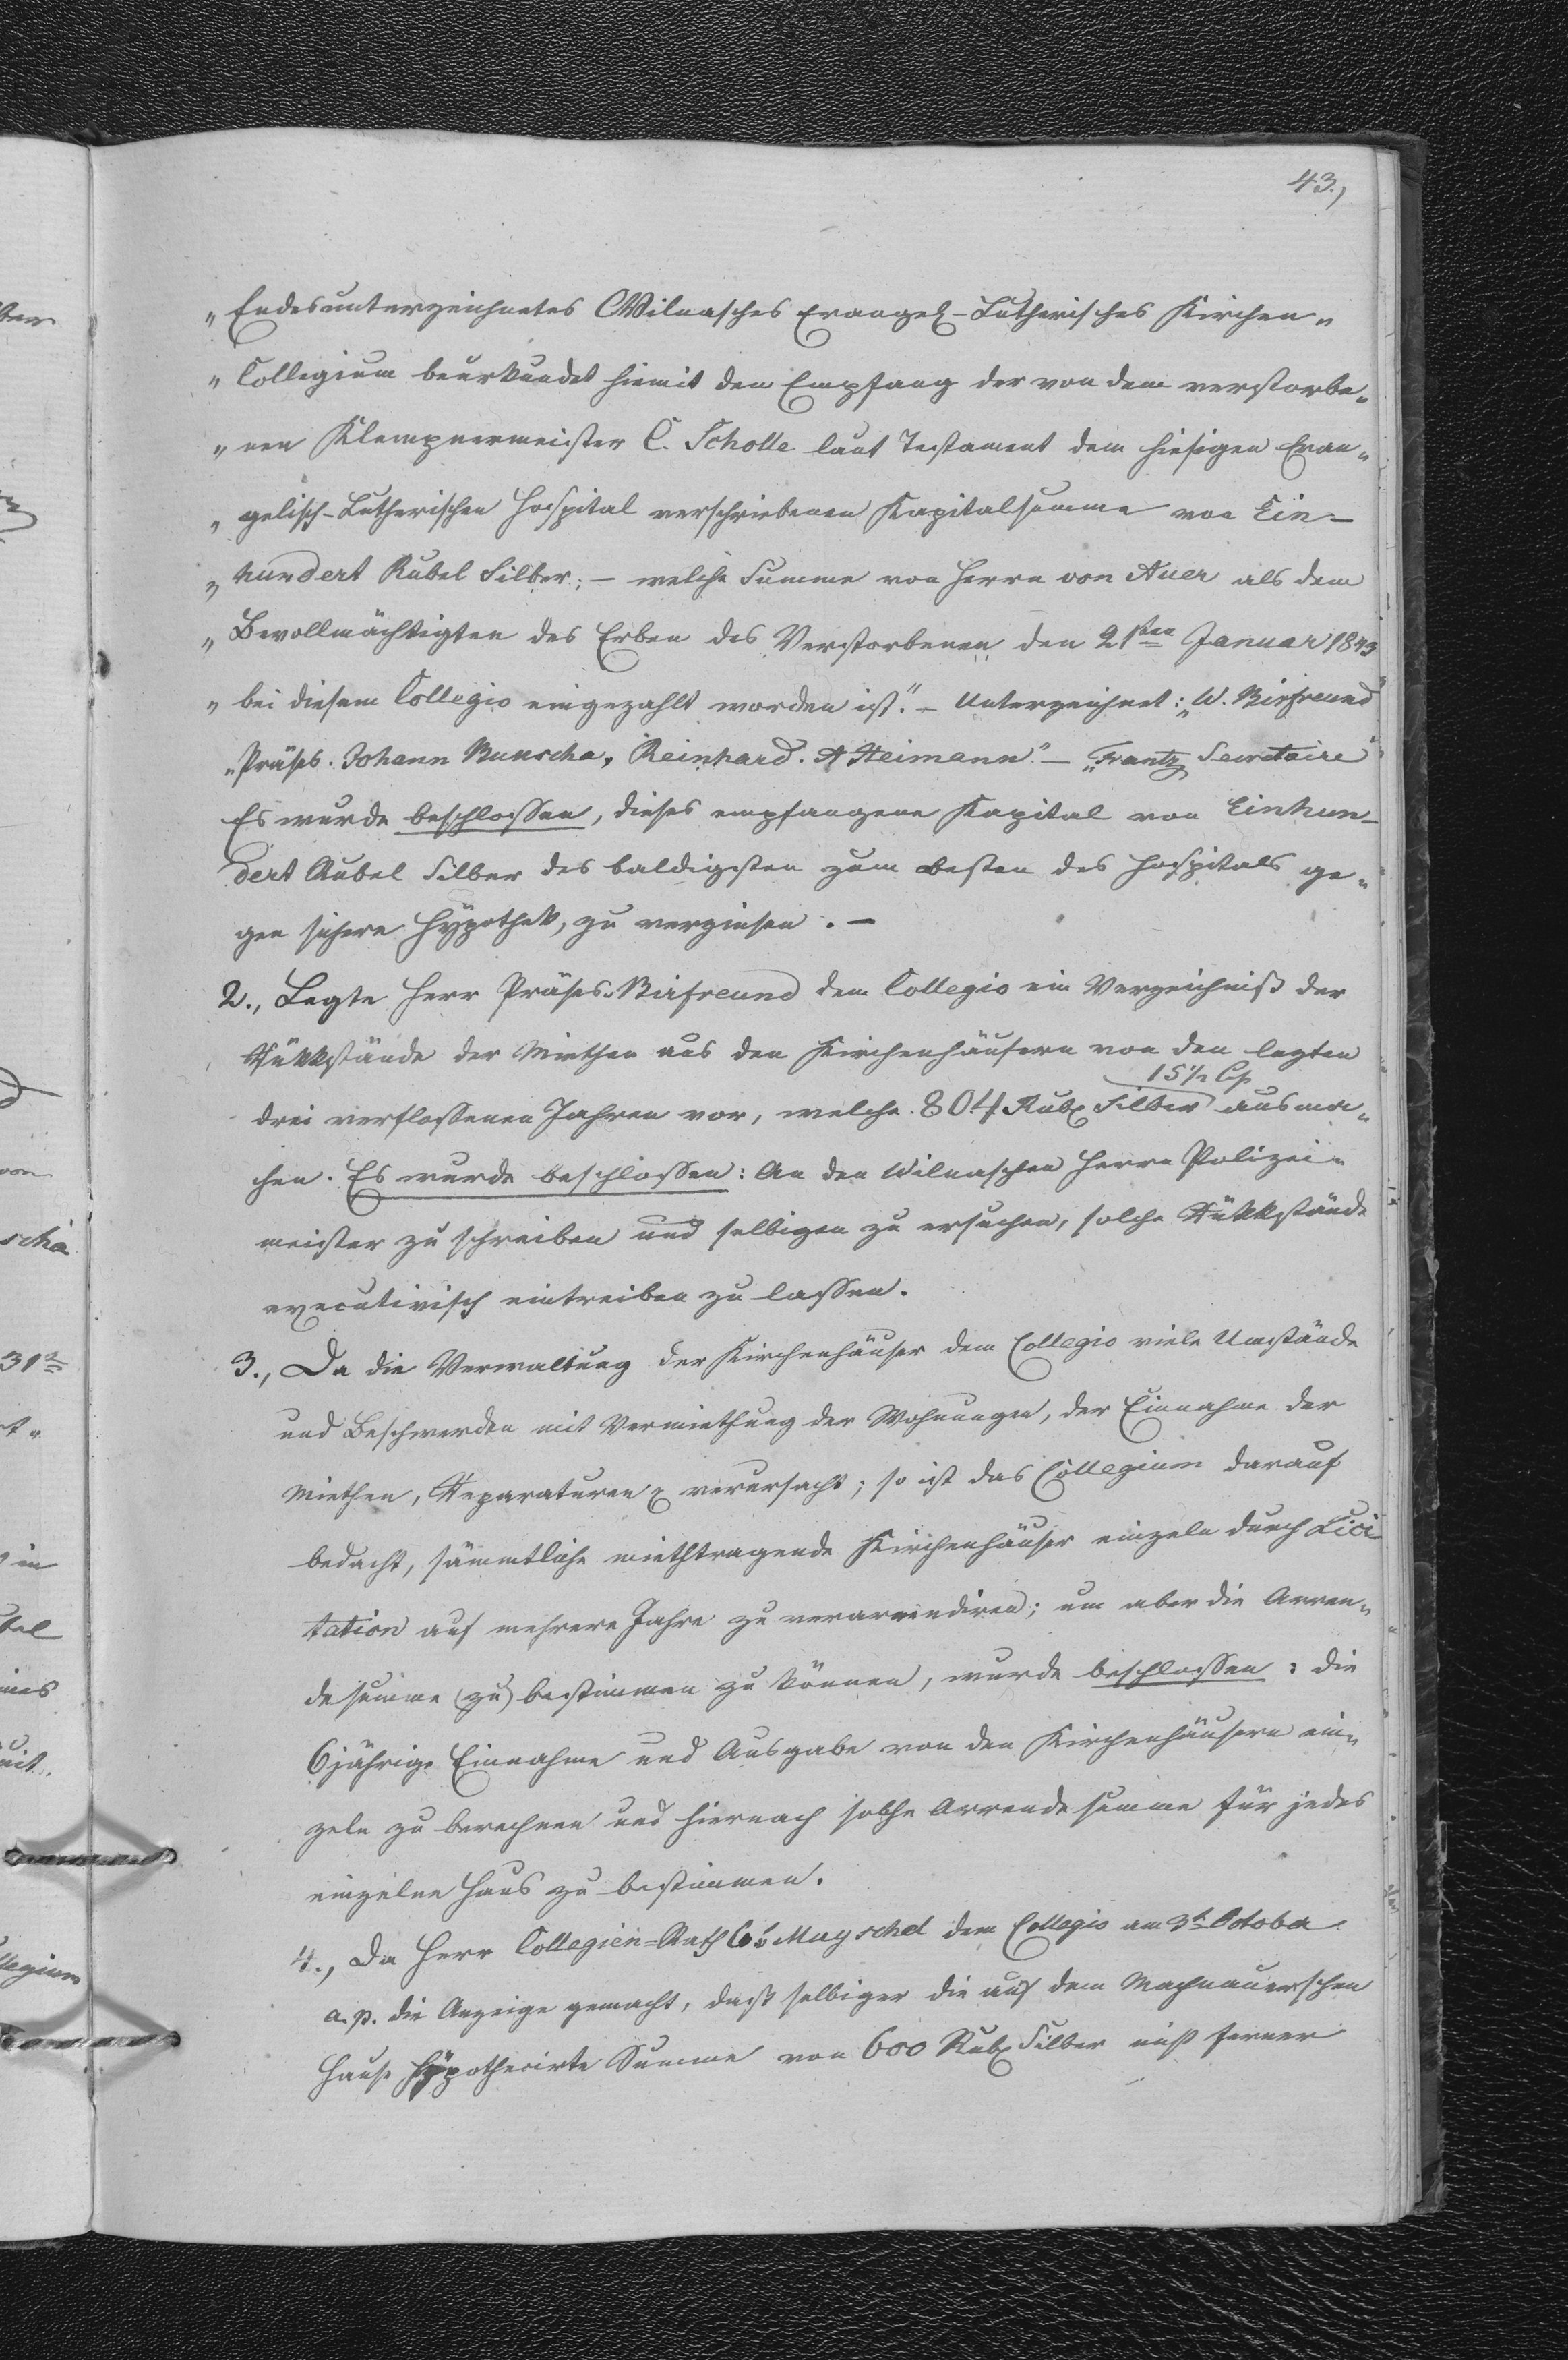 43.,
„Endesunterzeichnetes Wilnasches Evangel-Lutherisches Kirchen„
„Collegium beurkundet hiemit den Empfang der von dem verstorbe„
„nen Klempnermeister C. Scholle laut Testament dem hiesigen Evan„
„gelisch-Lutherischen Hospital verschriebenen Kapitalsumme von Ein-
„hundert Rubel Silber; – welche Summe von Herrn von Auer als dem
„Bevollmächtigten des Erben des Verstorbenen den 21sten Januar 1843
„bei diesem Collegio eingezahlt worden ist." – Unterzeichnet: „W. Birfreund
„Präses. Johann Bunscha, Reinhard. A Heimann." – „Frantz Secretaire"
Es wurde beschlossen, dieses empfangene Kapital von Einhun-
dert Rubel Silber des baldigsten zum Besten des Hospitals ge„
gen sichere Hÿpothek, zu verzinsen. –
2., Legte Herr Präses Birfreund dem Collegio ein Verzeichniß der
Rükkstände der Miethen aus den Kirchenhäusern von den letzten
15½ Cp
drei verflossenen Jahren vor, welche 804 Rub Silber ausma„
chen. Es wurde beschlossen: An den Wilnaschen Herrn Polizei„
meister zu schreiben und selbigen zu ersuchen, solche Rükkstände
executivisch eintreiben zu lassen.
3., Da die Verwaltung der Kirchenhäuser dem Collegio viele Umstände
und Beschwerden mit Vermiethung der Wohnungen, der Einnahme der
Miethen, Reparaturen verursacht; so ist das Collegium darauf
bedacht, sämmtliche miethtragende Kirchenhäuser einzeln durch Lici
tation auf mehrere Jahre zu verarrendiren; um aber die Arren„
desumme (zu) bestimmen zu können, wurde beschlossen: die
6jährige Einnahme und Ausgabe von den Kirchenhäusern ein„
zeln zu berechnen und hiernach solche Arrende summe für jedes
einzelne Haus zu bestimmen.
4., Da Herr Collegien=Rath Muyschel dem Collegio am 3t October
a. p. die Anzeige gemacht, daß selbiger die auf dem Machnauerschen
Hause Hÿpothecirte Summe von 600 Rub Silber nicht ferner